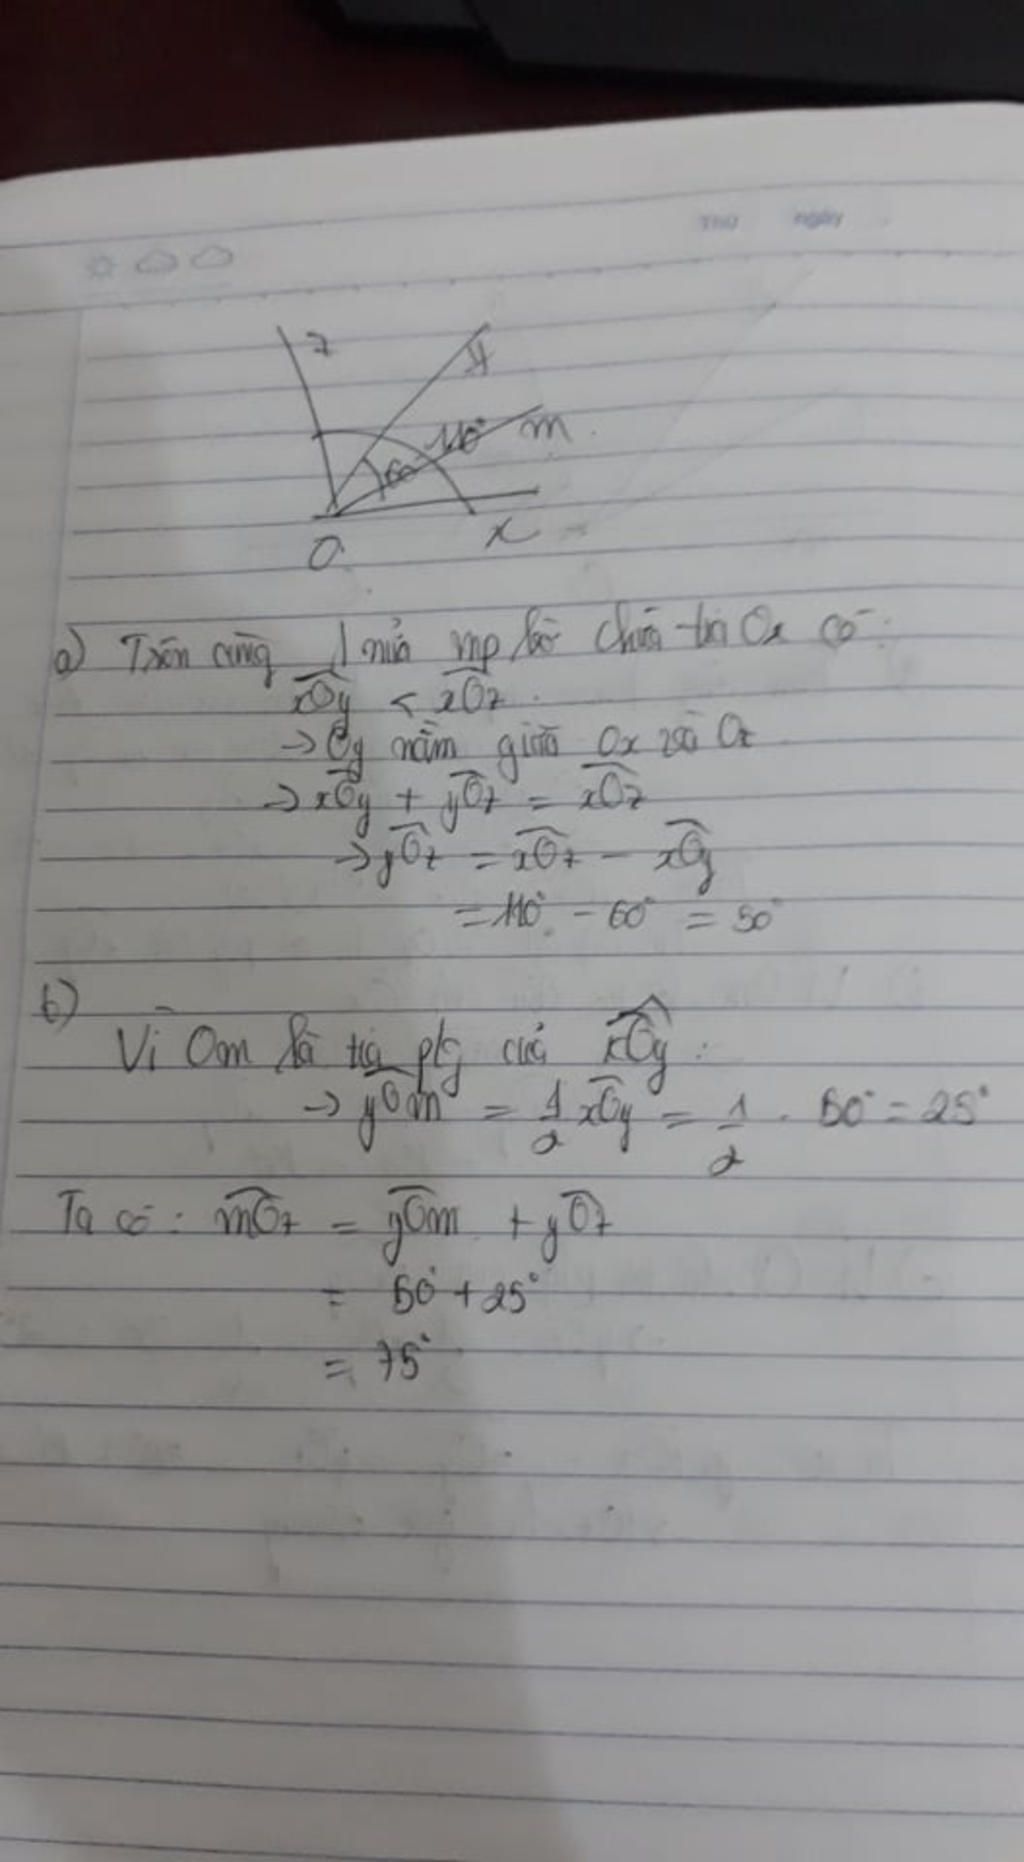 Thứ ngày
z
y
110° m
60
O x
a) Trên cùng 1 nửa mp bờ chứa tia Ox có:
xOy < xOz.
→ Oy nằm giữa Ox và Oz
→ xOy + yOz = xOz
→ yOz = xOz - xOy
= 110° - 60° = 50°
b)
Vì Om là tia plg của xOy:
→ yOm = 1/2 xOy = 1/2 . 50° = 25°
Ta có: mOz = yOm + yOz
= 50° + 25°
= 75°